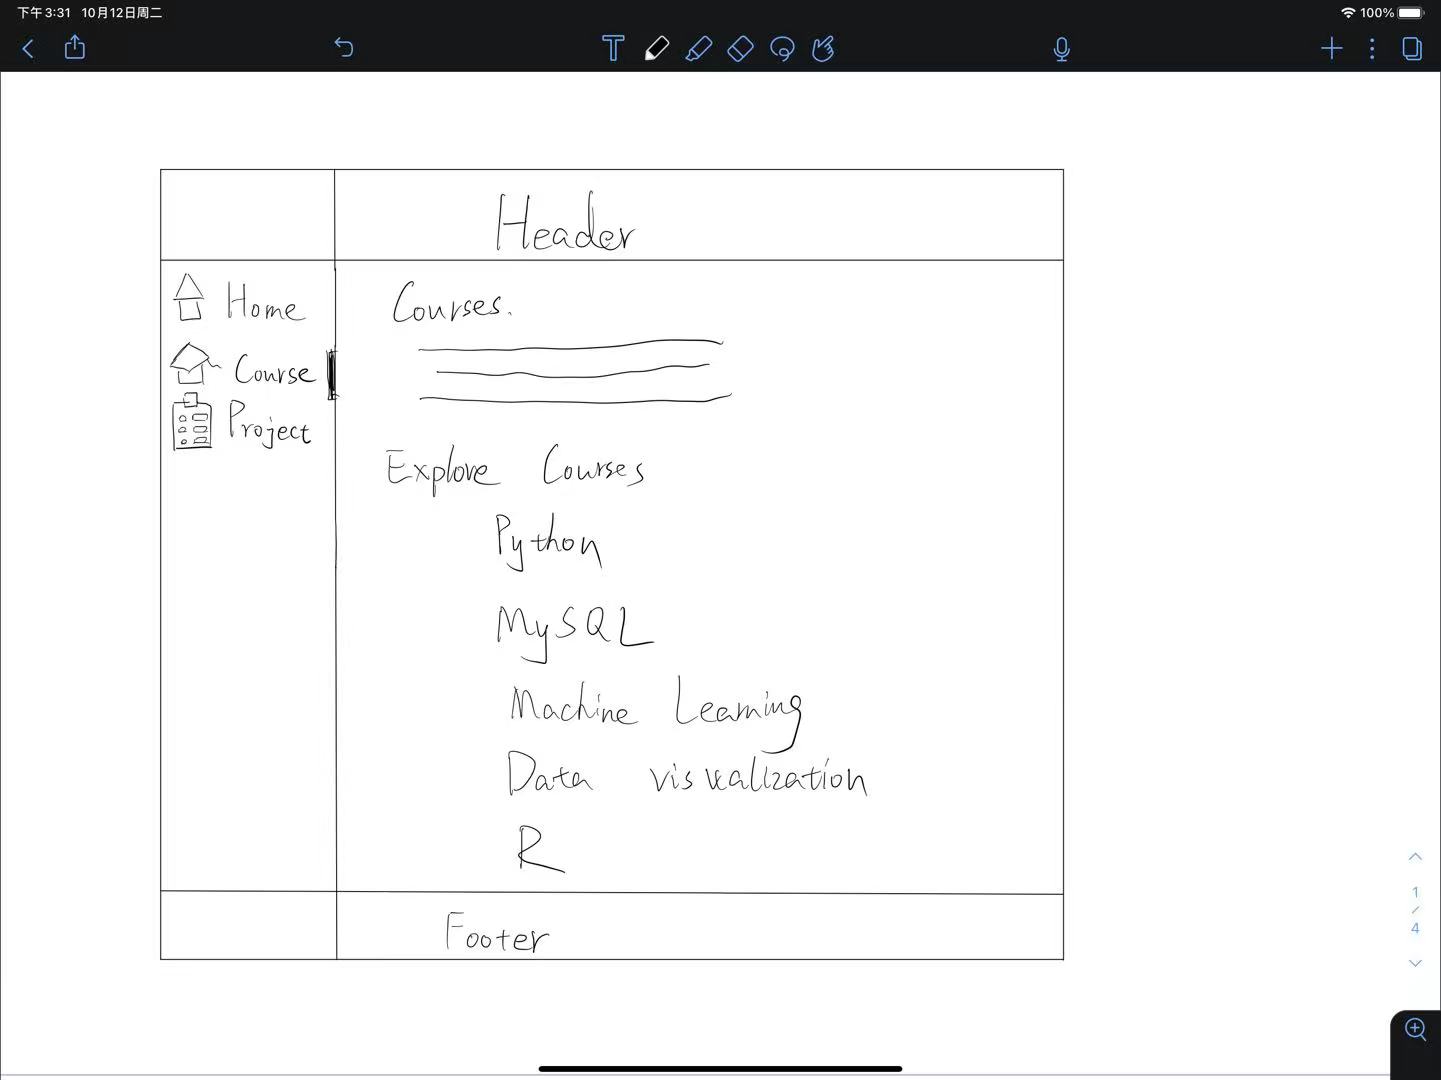 下午3:31 10月12日周二
100%
Header
Home
Course
Project
Courses.
Explore Courses
Python
MySQL
Machine Learning
Data visualization
R
Footer
1
/
4